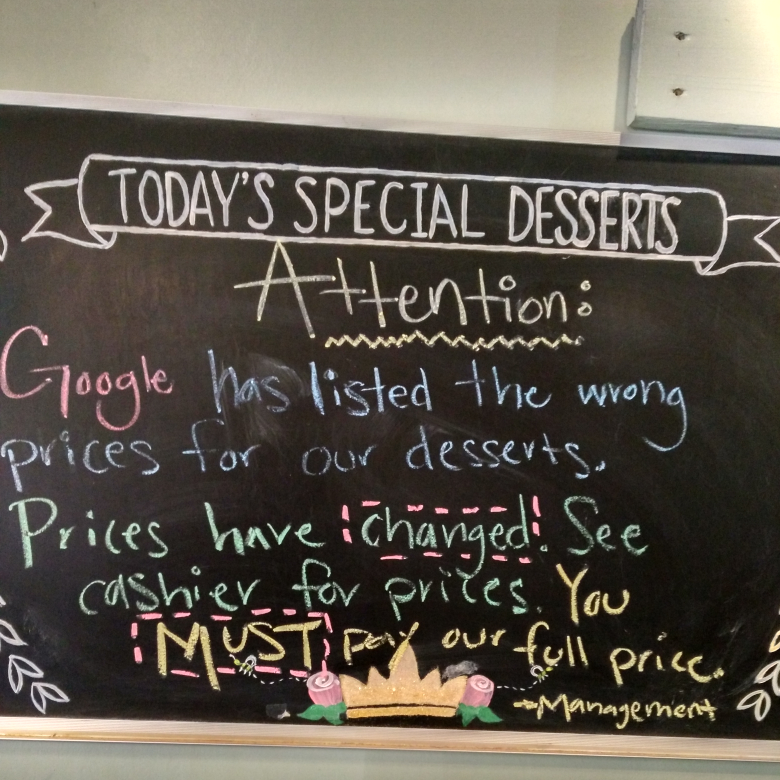 TODAY'S SPECIAL DESSERTS
Attention:
Google has listed the wrong
prices for our desserts.
Prices have changed. See
cashier for prices. You
MUST pay our full price.
-Management